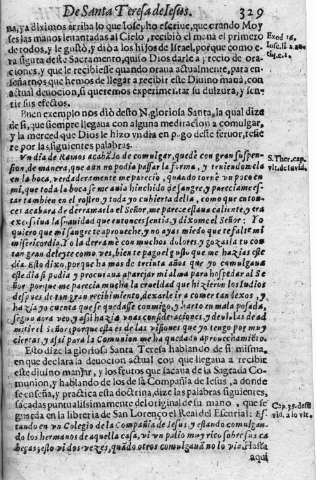 De Santa Teresa de Iesus. 329
na, ya diximos arriba lo que Iosepho escriue, que orando Moy
ses las manos leuantadas al Cielo, recibiò el mana el primero
de todos, y le gustò, y diò a los hijos de Israel, porque como era
figura deste Sacramento, quiso Dios darle a precio de oracio-
nes, y que le recibiesse quando oraua actualmente, para en-
señarnos que hemos de llegar a recibir este Diuino manà, con
actual deuocion, si queremos experimentar su dulzura, y sen
tir sus efectos.
Exod. 16.
Buen exemplo nos diò desto N. gloriosa Santa, la qual dize
de si, que siempre llegaua con alguna meditacion a comulgar,
y la merced que Dios le hizo vn dia en pago deste feruor, refie
re por las siguientes palabras.
Vn dia de Ramos acabãdo de comulgar, quedè con gran suspen-
sion, de manera, que aun no podia passar la forma, y teniendomela
en la boca, verdaderamente me pareciò, quando tornè vn poco en
mi, que toda la boca se me auia hinchido de sangre, y pareciame es-
tar tambien en el rostro, y toda yo cubierta della, como que enton-
ces acabara de derramarla el Señor, me parece estaua caliente, y era
excessiua la suauidad que entonces sentia, y dixome el Señor: Yo
quiero que mi sangre te aproueche, y no ayas miedo que te falte mi
misericordia. Yo la derramè con muchos dolores, y gozasla tu con
tan gran deleyte como ves, bien te pago el gusto que me hazias este
dia. Esto dixo, porque ha mas de treinta años que yo comulgaua
este dia si podia, y procuraua aparejar mi alma para hospedar al Se
ñor, porque me parecia mucha la crueldad que hizieron los Iudios
despues de tan gran recibimiento, dexarle ir a comer tan lexos, y
hazia yo cuenta que se quedasse conmigo, y harto en mala posada,
segun aora veo, y assi hazia vnas consideraciones, y deuialas de ad
mitir el Señor, porque esta es de las visiones que yo tengo por muy
ciertas, y assi para la Comunion me ha quedado aprouechamiẽto.
S. Ther. cap.
vlt. de su vid.
Esto dize la gloriosa Santa Teresa hablando de si misma,
en que declara la deuocion actual con que llegaua a recibir
este diuino manjar, y los frutos que sacaua de la Sagrada Co-
munion, y hablando de los de la Compañia de Iesus, a donde
se enseña, y practica esta doctrina, dize las palabras siguientes,
sacadas puntualissimamente de lo original de su mano, que se
guarda en la libreria de San Lorenço el Real del Escurial: Es-
tando en vn Colegio de la Compañia de Iesus, y estando comulgan-
do los hermanos de aquella casa, vi vn palio muy rico sobre sus ca
beças, esto vi dos vezes, quãdo otros comulgauã no lo via. Hasta
aqui